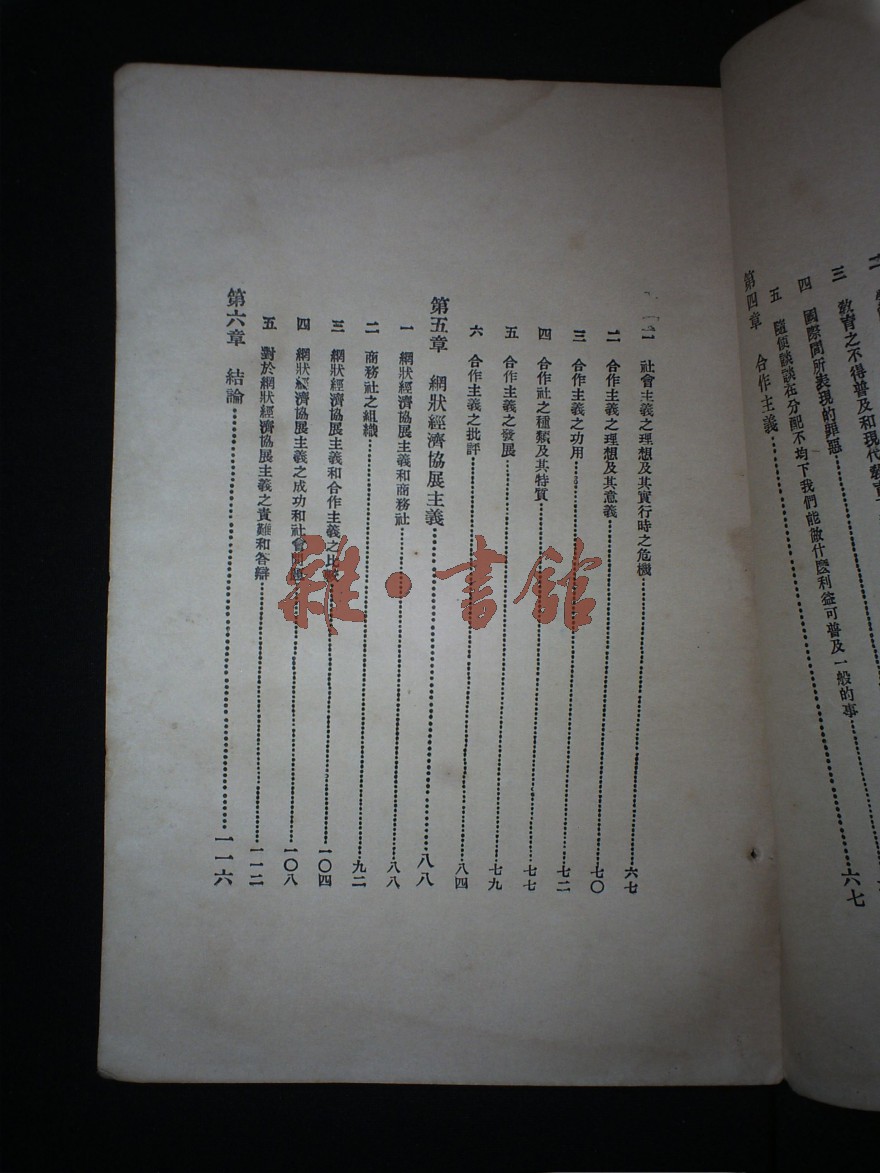 三 教育之不得普及和現代教育
四 國際間所表現的罪惡
五 隨便談談在分配不均下我們能做什麼利益可普及一般的事
第四章 合作主義 六七
一 社會主義之理想及其實行時之危機 六七
二 合作主義之理想及其意義 七〇
三 合作主義之功用 七二
四 合作社之種類及其特質 七七
五 合作主義之發展 七九
六 合作主義之批評 八四
第五章 網狀經濟協展主義 八八
一 網狀經濟協展主義和商務社 八八
二 商務社之組織 九二
三 網狀經濟協展主義和合作主義之比較 一〇四
四 網狀經濟協展主義之成功和社會問題 一〇八
五 對於網狀經濟協展主義之責難和答辯 一一二
第六章 結論 一一六
雜·書館